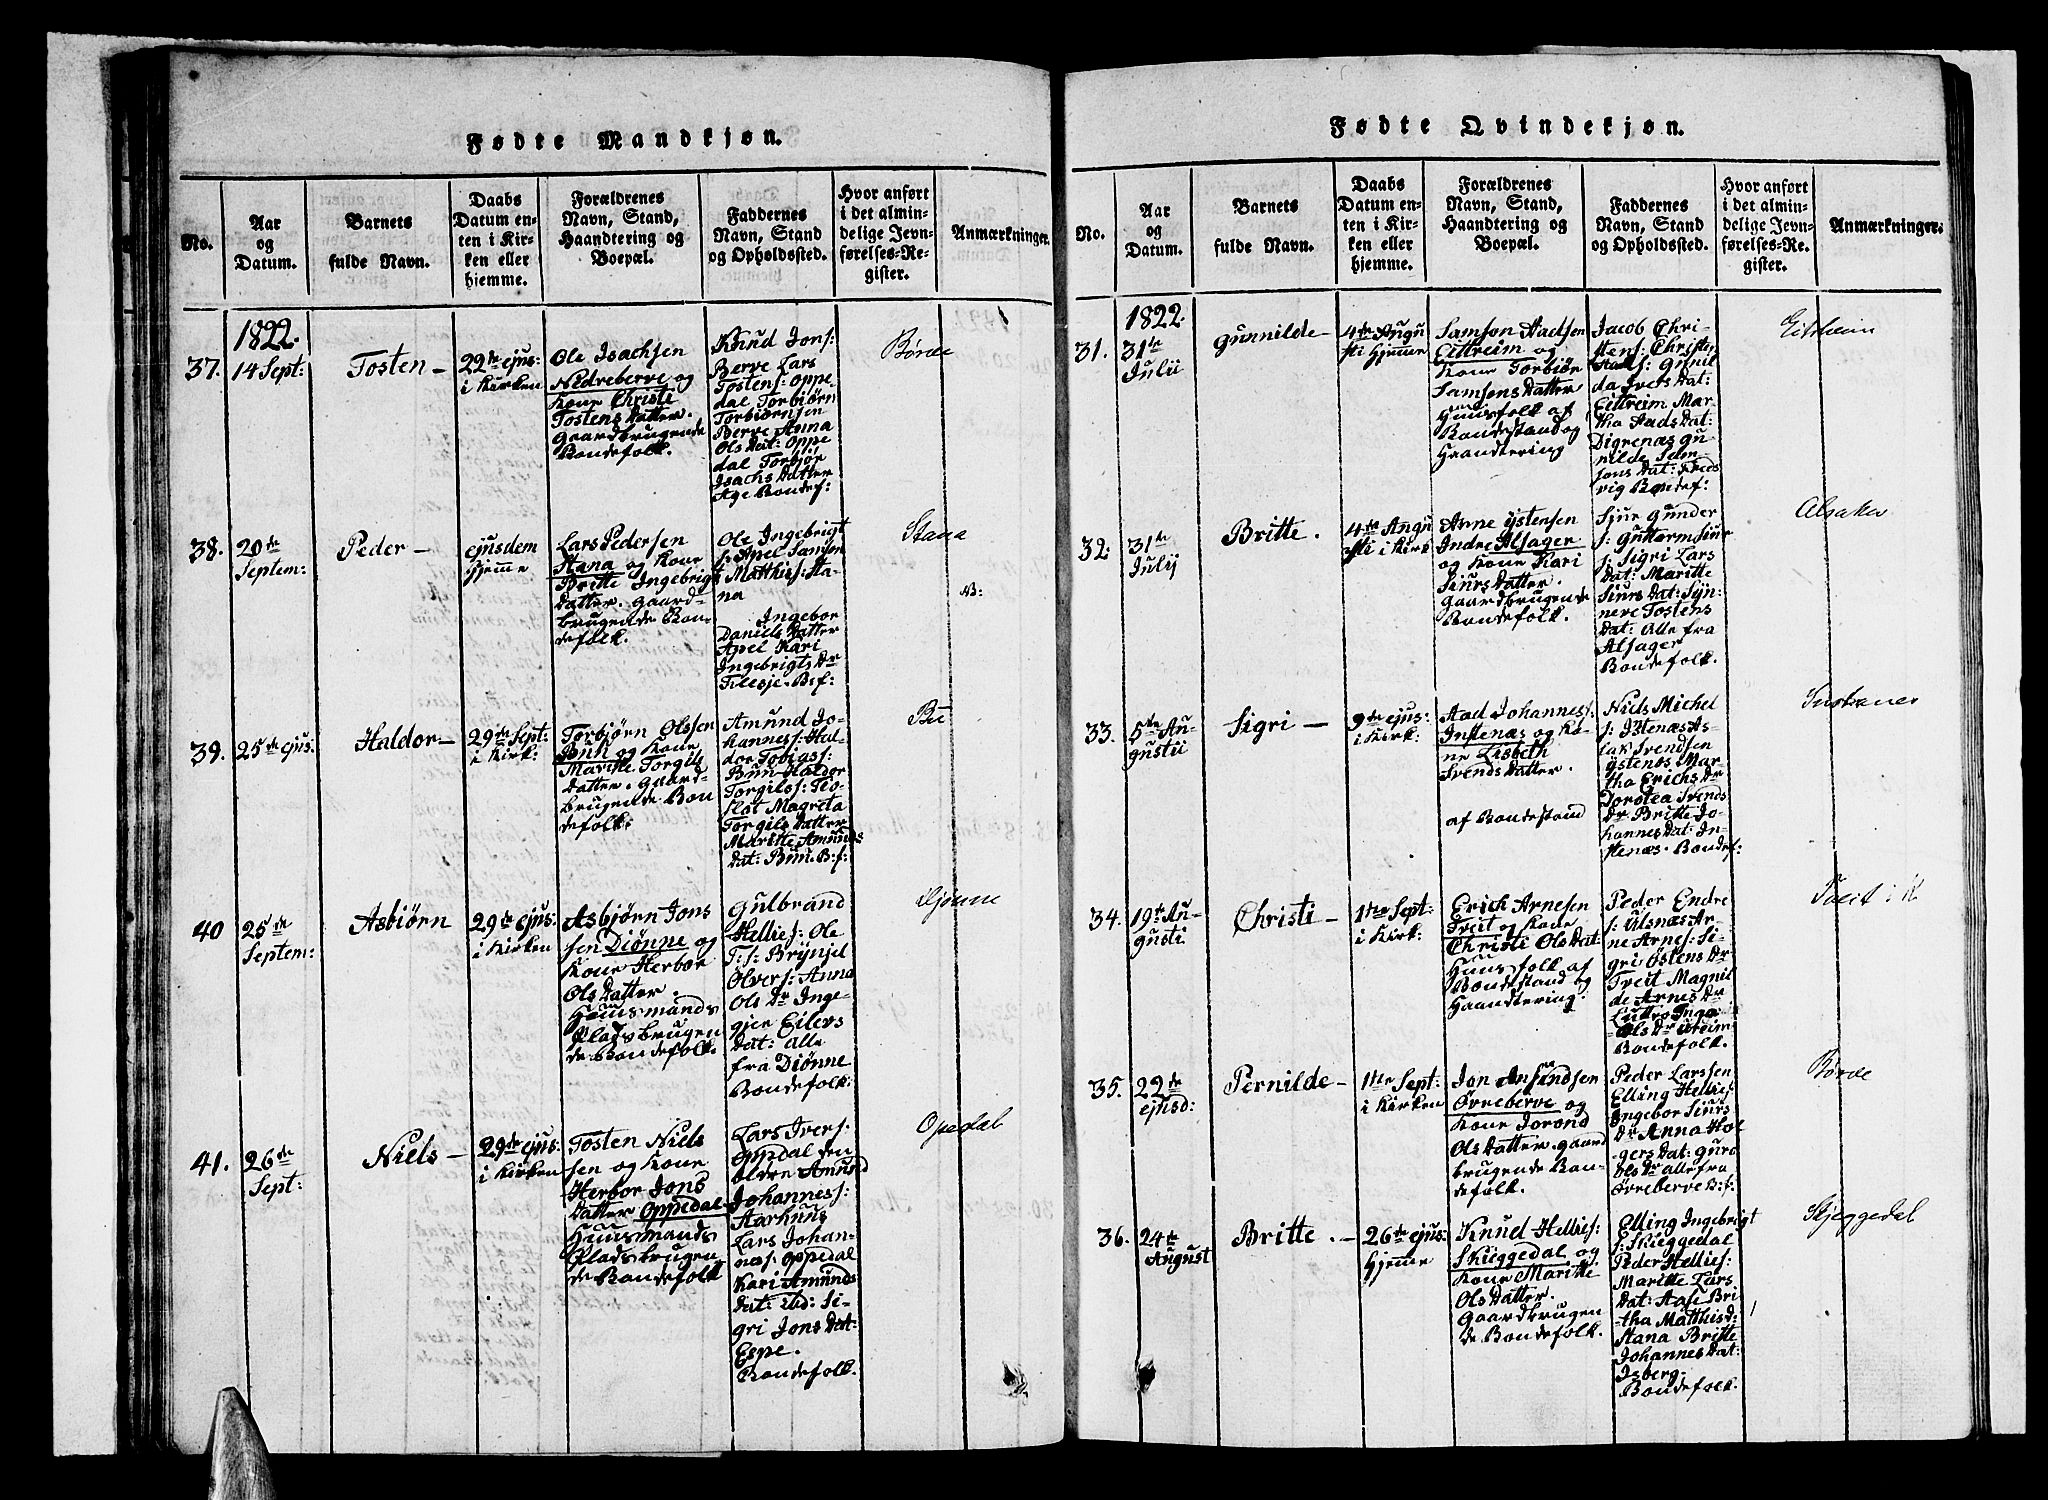 Fødte Mandkjøn.
No.
Aar
og
Datum.
Barnets
fulde Navn.
Daabs
Datum en-
ten i Kir-
ken eller
hjemme.
Forældrenes
Navn, Stand,
Haandtering og
Boepæl.
Faddernes
Navn, Stand
og Opholdssted.
Hvor anført
i det almin-
delige Jevn-
førelses-Re-
gister.
Anmærkninger.
1822.
37.
14 Sept:
Tosten –
29de ejus:
i Kirken
Ole Isachsen
Nedreberve og
Kone Christi
Tostens Datter.
Gaardbrugende
Bondefolk.
Knud Jons:
Berve Lars
Tostens: Oppe
dal Torbiørn
Torbiørnsen
Berve Anna
Ols Dat: Oppe
dal Torbjør
Isachs Datter
Age Bondef:
Børve
38.
20de
Septem:
Peder –
ejusdem
hjemme
Lars Pedersen
Stana og Kone
Britte Ingebrigts
Datter. Gaard-
brugende Bon-
defolk.
Ole Ingebrigt
s: Apel Samson
Matthies: Sta-
na
Ingebor
Daniels Datter
Apel Kari
Ingebrigts Dr
Tillesje. B:f:
Stana
B:
39.
25de ejus:
Haldor –
29de Sept:
i Kirk:
Torbjørn Olssen
Buh og Kone
Maritte Torgils
Datter. Gaard-
brugende Bon
defolk:
Amund Jo-
hanness: Hal-
dor Tobiass:
Bun Haldor
Torgilss: Flo-
slat Magreta
Torgils Datter
Maritte Amunds
Dat: Bun. B:f:
Bu
40
25de
Septem:
Asbiørn
29de ejus:
i Kirken
Asbjørn Jons
sen Diønne og
Kone Herbor
Ols Datter.
Huusmands
Pladsbrugen
de Bondefolk.
Gulbrand
Hellies: Ole
J:s: Brÿnjel
Olvers: Anna
Ols Dr Inge-
gjer Eilevs
Dat: Alle
fra Diønne
Bondefolk:
Djønne
41.
26de
Sept:
Niels –
29de ejus:
i Kirken
Tosten Niels
sen og Kone
Herbor Jons
Datter Oppedal
Huusmands
Pladsbrugen
de Bondefolk
Lars Ivers:
Oppdal den
olden Amund
Johanness:
Aarhuus
Lars Johan-
nas: Oppedal
Kari Amunds
Dat: ibd: Si-
gri Jons Dat
Espe.
Bondefolk.
Opedal
Fødte Qvindekjøn.
No.
Aar
og
Datum.
Barnets
fulde Navn.
Daabs
Datum en-
ten i Kir-
ken eller
hjemme.
Forældrenes
Navn, Stand,
Haandtering og
Boepæl.
Faddernes
Navn, Stand
og Opholdssted.
Hvor anført
i det almin-
delige Jevn-
førelses-Re-
gister.
Anmærkninger.
1822.
31.
31te
Julii
Gunnilde –
4de Augu
sti Hjemme
Samson Aadsen
Eittreim og
Kone Torbiør
Samsons Datter
Huusfolk af
Bondestand og
Haandtering
Jacob Chri-
stens: Christen
Aads: Gunil
da Ivers Dat:
Eittreim Mar
tha Aads Dat:
Digrenæs Gu-
nilde Sam-
sons Dat:
vig Bondef:
Eitrheim
32.
31te
Julij
Britte.
4de Augu
sti i Kirk
Arne Ÿstensen
Indre Alsager
og Kone Kari
Siurs Datter.
Gaardbrugende
Bondefolk.
Sjur Gunder
s: Guttorm Siur
s: Sigri Lars
Dat: Maritte
Siurs Dat: Sÿn-
neve Tostens
Dat: Alle fra
Alsager
Bondefolk.
Alsaker
33.
5te Au-
gustii
Sigri –
9de ejus:
i Kirk:
Aad Johanness:
Instenæs og Ko-
ne Lisbeth
Svends Datter.
af Bondestand
Niels Michel
s: Istenæs As-
lak Svendsen
Ystenæs Mar-
tha Erichs Dr
Dorotea Svends
Dr Britte Jo-
hannes Dat: In-
stenæs. Bondef:
34.
19de Au-
gusti
Christi –
1te Sept:
i Kirk:
Erich Arnesen
Treit og Kone
Christi Ols Dat:
Huusfolk af
Bondestand og
Haandtering.
Peder Endre
s: Ulsnæs Ar-
ne Arnes: Si-
gri Østens Dr
Treit Magnil
de Arnes Dr
Luttro Inga
Ols Dr Utreim
Bondefolk.
35.
22de
ejusd:
Pernilde –
1te Sept:
i Kirken
Jon Amundsen
Øvreberve og
Kone Jorond
Ols Datter. Gaard
brugende Bon-
defolk.
Peder Larssen
Elling Hellies:
Ingebor Siurs
Dr Anna Hol
gers Dat: Guro
Ols Dr alle fra
Øvreberve B:f:
Børve
36.
24de
August
Britte. –
26de ejus:
Hjemme
Knud Hellies:
Skieggedal og
Kone Maritte
Ols Datter.
Gaardbrugen
de Bondefolk.
Elling Ingebrigt
s: Skieggedal
Peder Hellies:
Maritte Lars
Dat: Aase Bri
tha Matthisd:
Stana Britte
Johannes Dat:
Isberg.
Bondefolk.
Skjeggedal